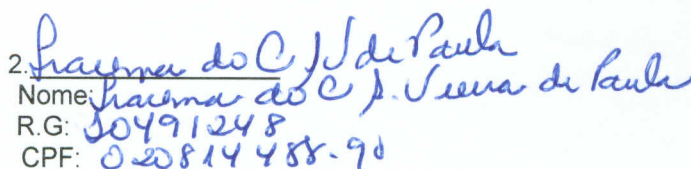 2. Iracema do C S V de Paula
Nome: Iracema do C S. Vieira de Paula
R.G: 10491248
CPF: 020814488-90